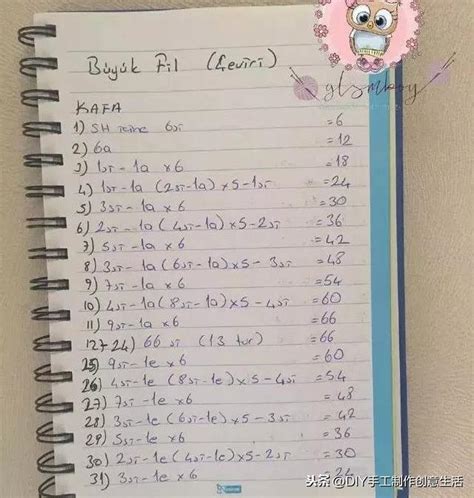 Büyük Fil (Çeviri)
KAFA
1) SH içine 6sı =6
2) 6a =12
3) 1sı-1a x6 =18
4) 1sı-1a (2sı-1a)x5-1sı =24
5) 3sı-1a x6 =30
6) 2sı-1a (4sı-1a)x5-2sı =36
7) 5sı-1a x6 =42
8) 3sı-1a (6sı-1a)x5-3sı =48
9) 7sı-1a x6 =54
10) 4sı-1a (8sı-1a)x5-4sı =60
11) 9sı-1a x6 =66
12-24) 66 sı (13 tur) =66
25) 9sı-1e x6 =60
26) 4sı-1e (8sı-1e)x5-4sı =54
27) 7sı-1e x6 =48
28) 3sı-1e (6sı-1e)x5-3sı =42
29) 5sı-1e x6 =36
30) 2sı-1e (4sı-1e)x5-2sı =30
31) 3sı-1e x6 =24
头条 @DIY手工制作创意生活